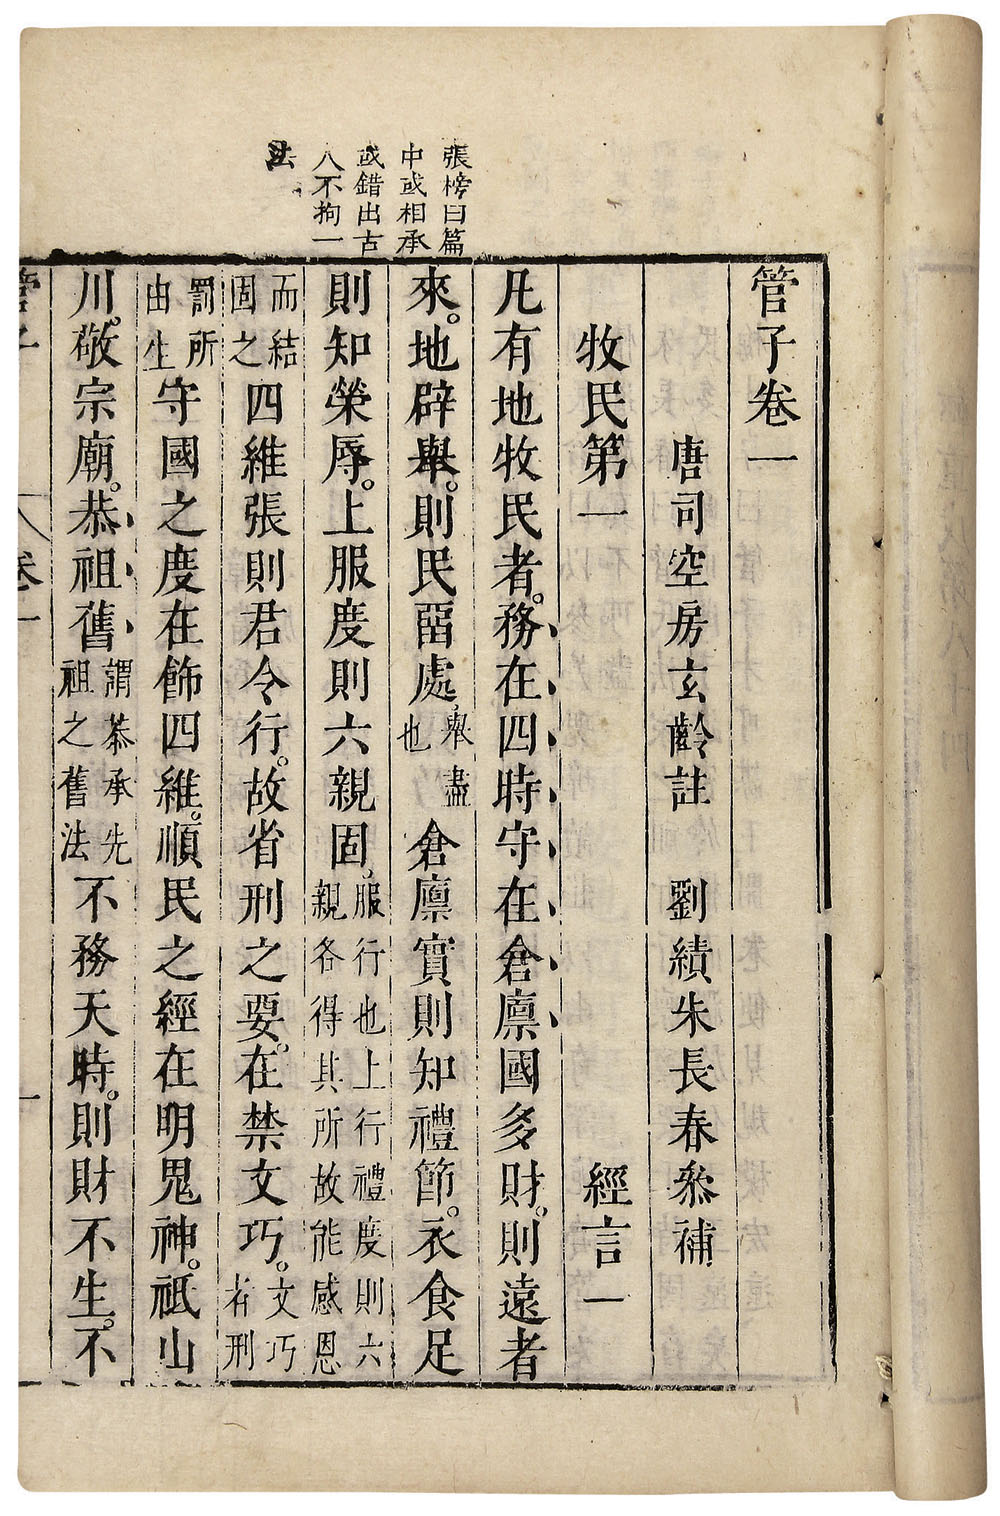 張榜曰篇
中或相承
或錯出古
人不拘一
法
管子卷一
唐司空房玄齡註　劉績朱長春叅補
牧民第一　經言一
凡有地牧民者。務在四時守在倉廪國多財。則遠者
來。地辟舉。則民留處。舉盡也倉廪實則知禮節。衣食足
則知榮辱。上服度則六親固。服行也上行禮度則六親各得其所故能感恩
而結固之四維張則君令行。故省刑之要。在禁文巧。文巧者刑
罰所由生守國之度在飾四維。順民之經在明鬼神。祇山
川。敬宗廟。恭祖舊謂恭承先祖之舊法不務天時。則財不生。不
管子
卷一
一